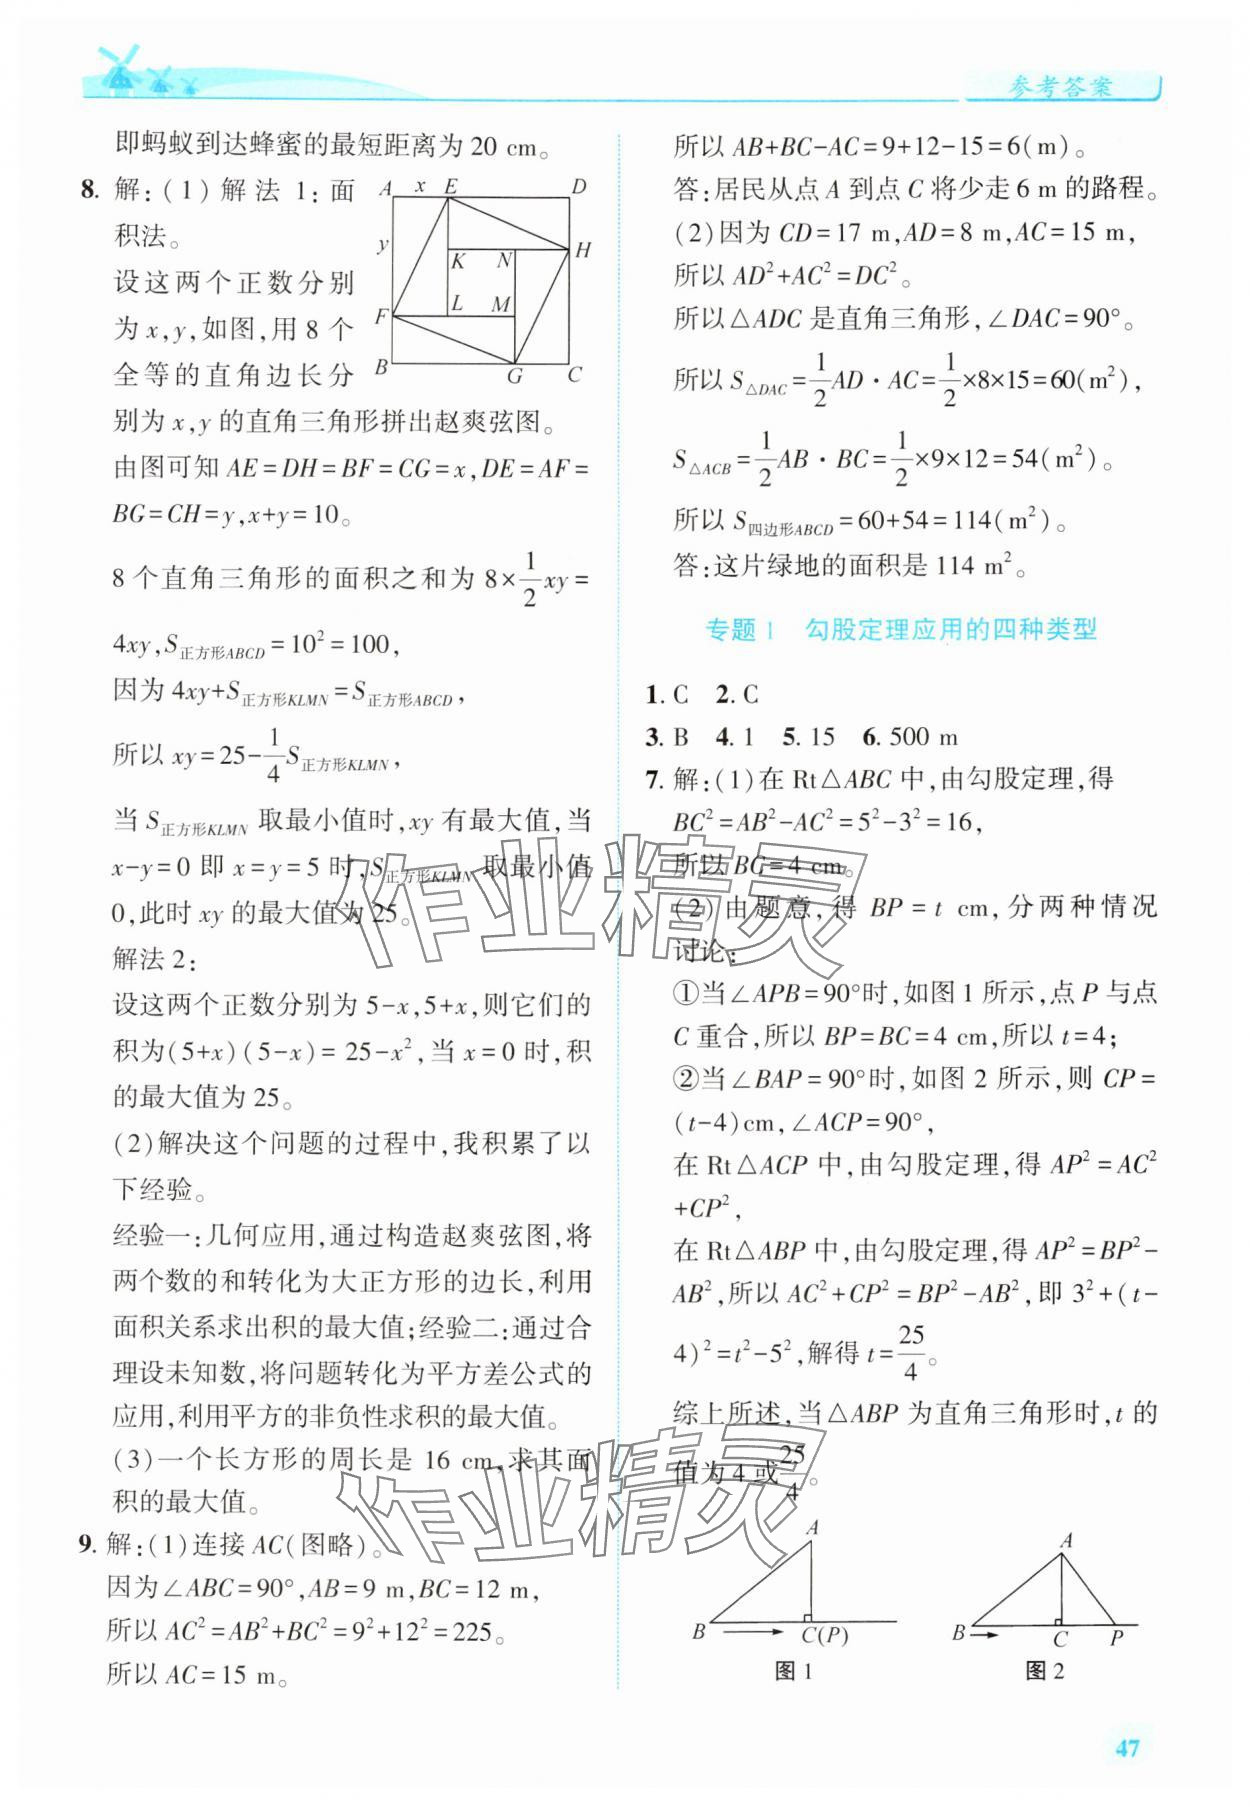 参考答案
即蚂蚁到达蜂蜜的最短距离为 20 cm。
8. 解:(1) 解法 1: 面
积法。
设这两个正数分别
为 x,y,如图,用 8 个
全等的直角边长分
别为 x,y 的直角三角形拼出赵爽弦图。
A x E D
y
H
K N
L M
F
B G C
由图可知 AE=DH=BF=CG=x,DE=AF=
BG=CH=y,x+y=10。
8 个直角三角形的面积之和为 8×1/2xy=
4xy,S正方形ABCD=10²=100,
因为 4xy+S正方形KLMN=S正方形ABCD,
所以 xy=25-1/4S正方形KLMN,
当 S正方形KLMN 取最小值时,xy 有最大值,当
x-y=0 即 x=y=5 时,S正方形KLMN 取最小值
0,此时 xy 的最大值为 25。
解法 2:
设这两个正数分别为 5-x,5+x,则它们的
积为(5+x)(5-x)=25-x²,当 x=0 时,积
的最大值为 25。
(2)解决这个问题的过程中,我积累了以
下经验。
经验一:几何应用,通过构造赵爽弦图,将
两个数的和转化为大正方形的边长,利用
面积关系求出积的最大值;经验二:通过合
理设未知数,将问题转化为平方差公式的
应用,利用平方的非负性求积的最大值。
(3)一个长方形的周长是 16 cm,求其面
积的最大值。
9. 解:(1)连接 AC(图略)。
因为∠ABC=90°,AB=9 m,BC=12 m,
所以 AC²=AB²+BC²=9²+12²=225。
所以 AC=15 m。
所以 AB+BC-AC=9+12-15=6(m)。
答:居民从点 A 到点 C 将少走 6 m 的路程。
(2)因为 CD=17 m,AD=8 m,AC=15 m,
所以 AD²+AC²=DC²。
所以△ADC 是直角三角形,∠DAC=90°。
所以 S△DAC=1/2AD·AC=1/2×8×15=60(m²),
S△ACB=1/2AB·BC=1/2×9×12=54(m²)。
所以 S四边形ABCD=60+54=114(m²)。
答:这片绿地的面积是 114 m²。
专题 1 勾股定理应用的四种类型
1. C 2. C
3. B 4. 1 5. 15 6. 500 m
7. 解:(1)在 Rt△ABC 中,由勾股定理,得
BC²=AB²-AC²=5²-3²=16,
所以 BC=4 cm。
(2)由题意,得 BP=t cm,分两种情况
讨论:
①当∠APB=90°时,如图 1 所示,点 P 与点
C 重合,所以 BP=BC=4 cm,所以 t=4;
②当∠BAP=90°时,如图 2 所示,则 CP=
(t-4)cm,∠ACP=90°,
在 Rt△ACP 中,由勾股定理,得 AP²=AC²
+CP²,
在 Rt△ABP 中,由勾股定理,得 AP²=BP²-
AB²,所以 AC²+CP²=BP²-AB²,即 3²+(t-
4)²=t²-5²,解得 t=25/4。
综上所述,当△ABP 为直角三角形时,t 的
值为 4 或25/4。
A
B C(P)
图 1
A
B C P
图 2
作业精灵
作业精灵
47